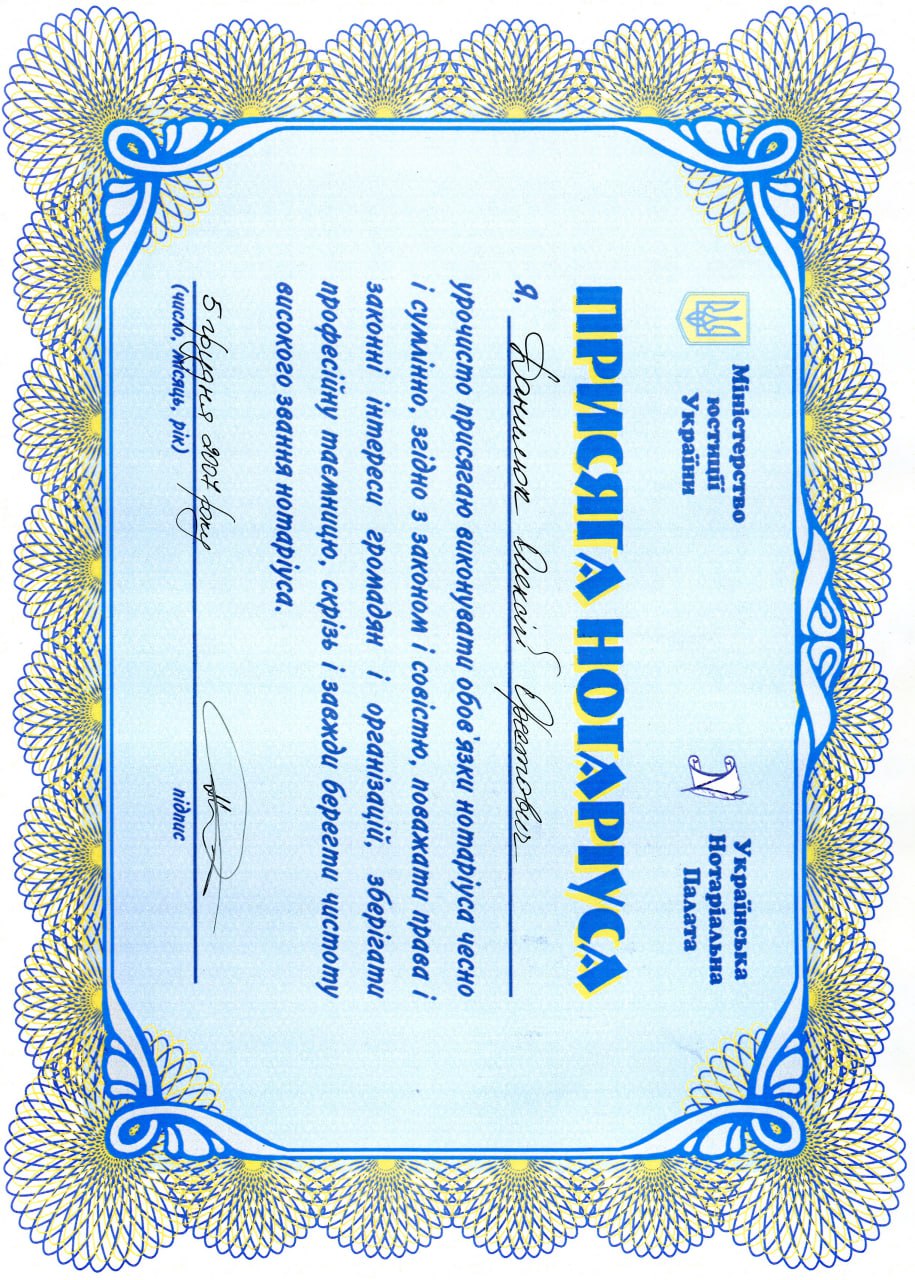 Міністерство
юстиції
України
Українська
Нотаріальна
Палата
ПРИСЯГА НОТАРІУСА
Я, Данилюк Олексій Орестович
урочисто присягаю виконувати обов'язки нотаріуса чесно
і сумлінно, згідно з законом і совістю, поважати права і
законні інтереси громадян і організацій, зберігати
професійну таємницю, скрізь і завжди берегти чистоту
високого звання нотаріуса.
5 грудня 2007 року
(число, місяць, рік)
підпис